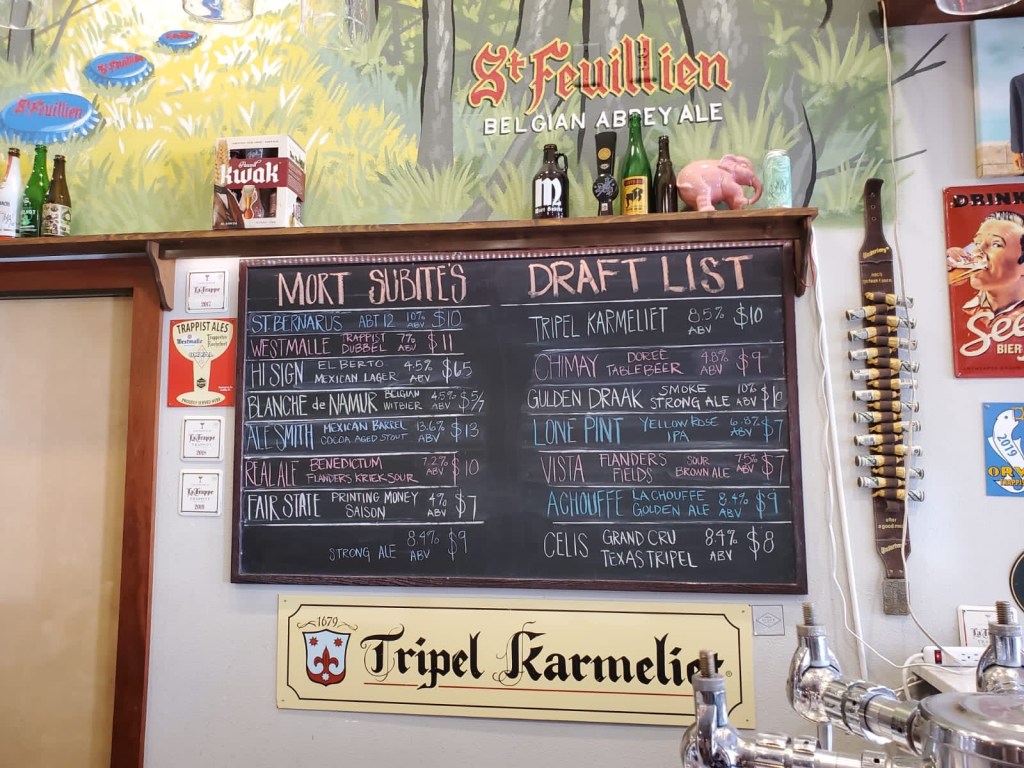 St Feuillien
St Feuillien
St Feuillien
BELGIAN ABBEY ALE
Kwak
M
MORT SUBITE'S
ST BERNARUS ABT 12 10% ABV $10
WESTMALLE TRAPPIST DUBBEL 7% ABV $11
HI SIGN EL BERTO MEXICAN LAGER 4.5% ABV $6.5
BLANCHE de NAMUR BELGIAN WITBIER 4.5% ABV $5/7
ALE SMITH MEXICAN BARREL COCOA AGED STOUT 13.6% ABV $13
REAL ALE BENEDICTUM FLANDERS KRIEK SOUR 7.2% ABV $10
FAIR STATE PRINTING MONEY SAISON 4% ABV $7
STRONG ALE 8.4% ABV $9
DRAFT LIST
TRIPEL KARMELIET 8.5% ABV $10
CHIMAY DOREÉ TABLE BEER 4.8% ABV $9
GULDEN DRAAK SMOKE STRONG ALE 10% ABV
LONE PINT YELLOW ROSE IPA 6.8% ABV $7
VISTA FLANDERS FIELDS SOUR BROWN ALE 7.5% ABV $7
ACHOUFFE LA CHOUFFE GOLDEN ALE 8.4% ABV $9
CELIS GRAND CRU TEXAS TRIPEL 8.4% ABV $8
La Trappe
2017
TRAPPIST ALES
Westmalle
La Trappe
La Trappe
1679
Tripel Karmeliet
DRINK
See
BIER
2019
ORV
TRAPPIS